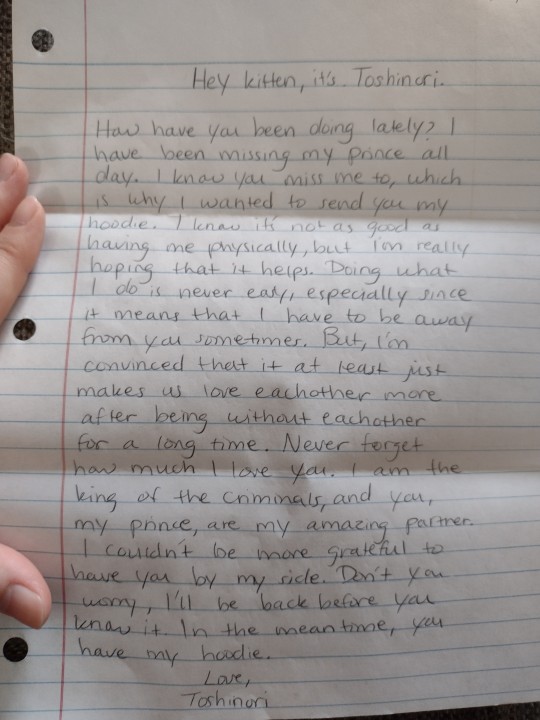 Hey kitten, it's Toshinori.
How have you been doing lately? I
have been missing my prince all
day. I know you miss me to, which
is why I wanted to send you my
hoodie. I know it's not as good as
having me physically, but I'm really
hoping that it helps. Doing what
I do is never easy, especially since
it means that I have to be away
from you sometimes. But, I'm
convinced that it at least just
makes us love eachother more
after being without eachother
for a long time. Never forget
how much I love you. I am the
king of the criminals, and you,
my prince, are my amazing partner.
I couldn't be more grateful to
have you by my side. Don't you
worry, I'll be back before you
know it. In the meantime, you
have my hoodie.
Love,
Toshinori